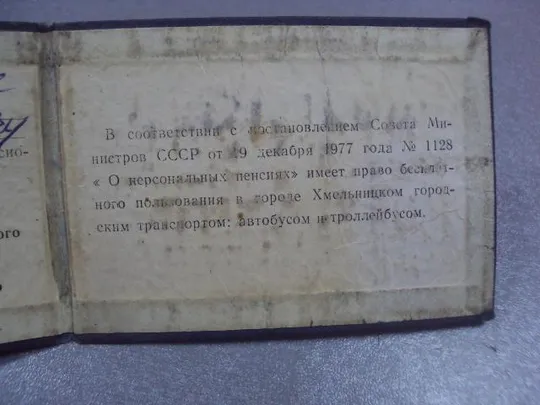 сио-
ного
В соответствии с постановлением Совета Ми-
нистров СССР от 19 декабря 1977 года № 1128
« О персональных пенсиях» имеет право бесплат-
ного пользования в городе Хмельницком город-
ским транспортом: автобусом и троллейбусом.